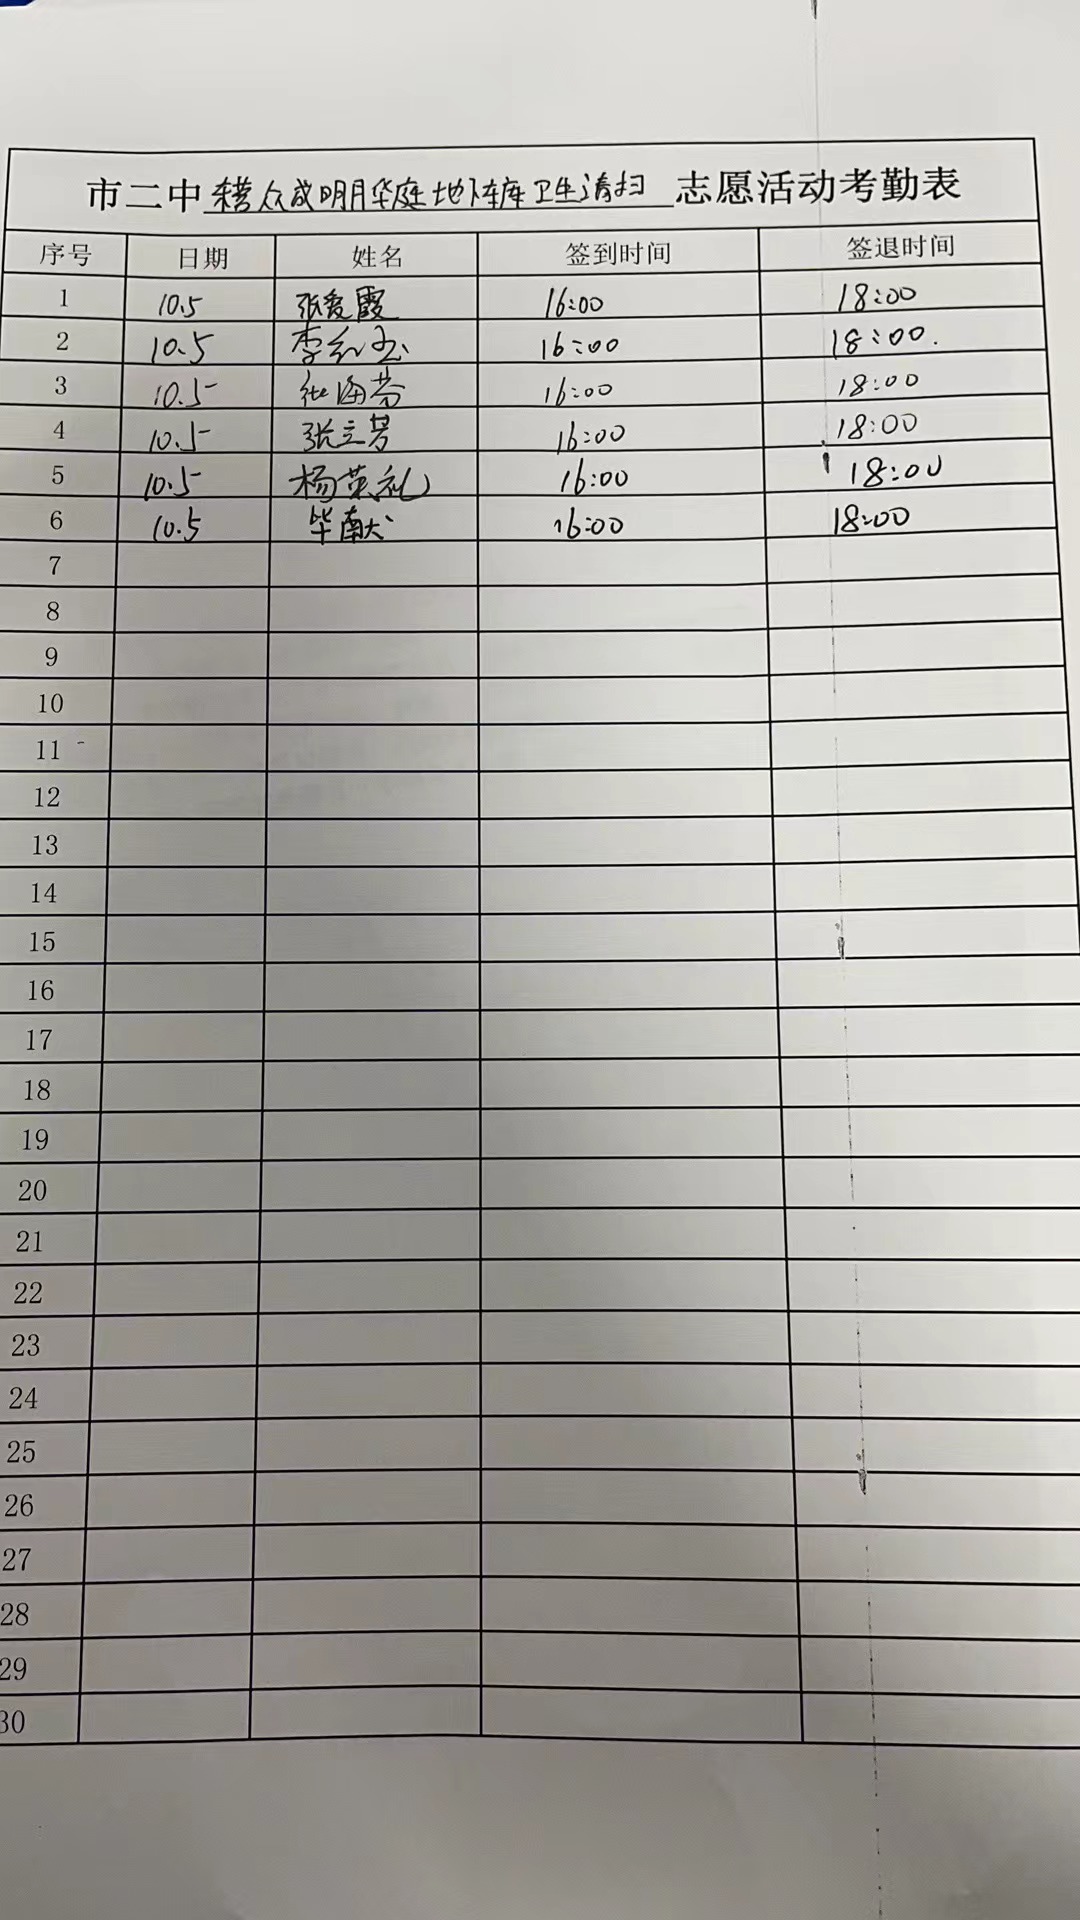 市二中 众成明月华庭地下车库卫生清扫 志愿活动考勤表
序号 日期 姓名 签到时间 签退时间
1 10.5 张爱霞 16:00 18:00
2 10.5 李红玉 16:00 18:00.
3 10.5 海芬 16:00 18:00
4 10.5 张立芳 16:00 18:00
5 10.5 杨英礼 16:00 18:00
6 10.5 毕南 16:00 18:00
7
8
9
10
11
12
13
14
15
16
17
18
19
20
21
22
23
24
25
26
27
28
29
30